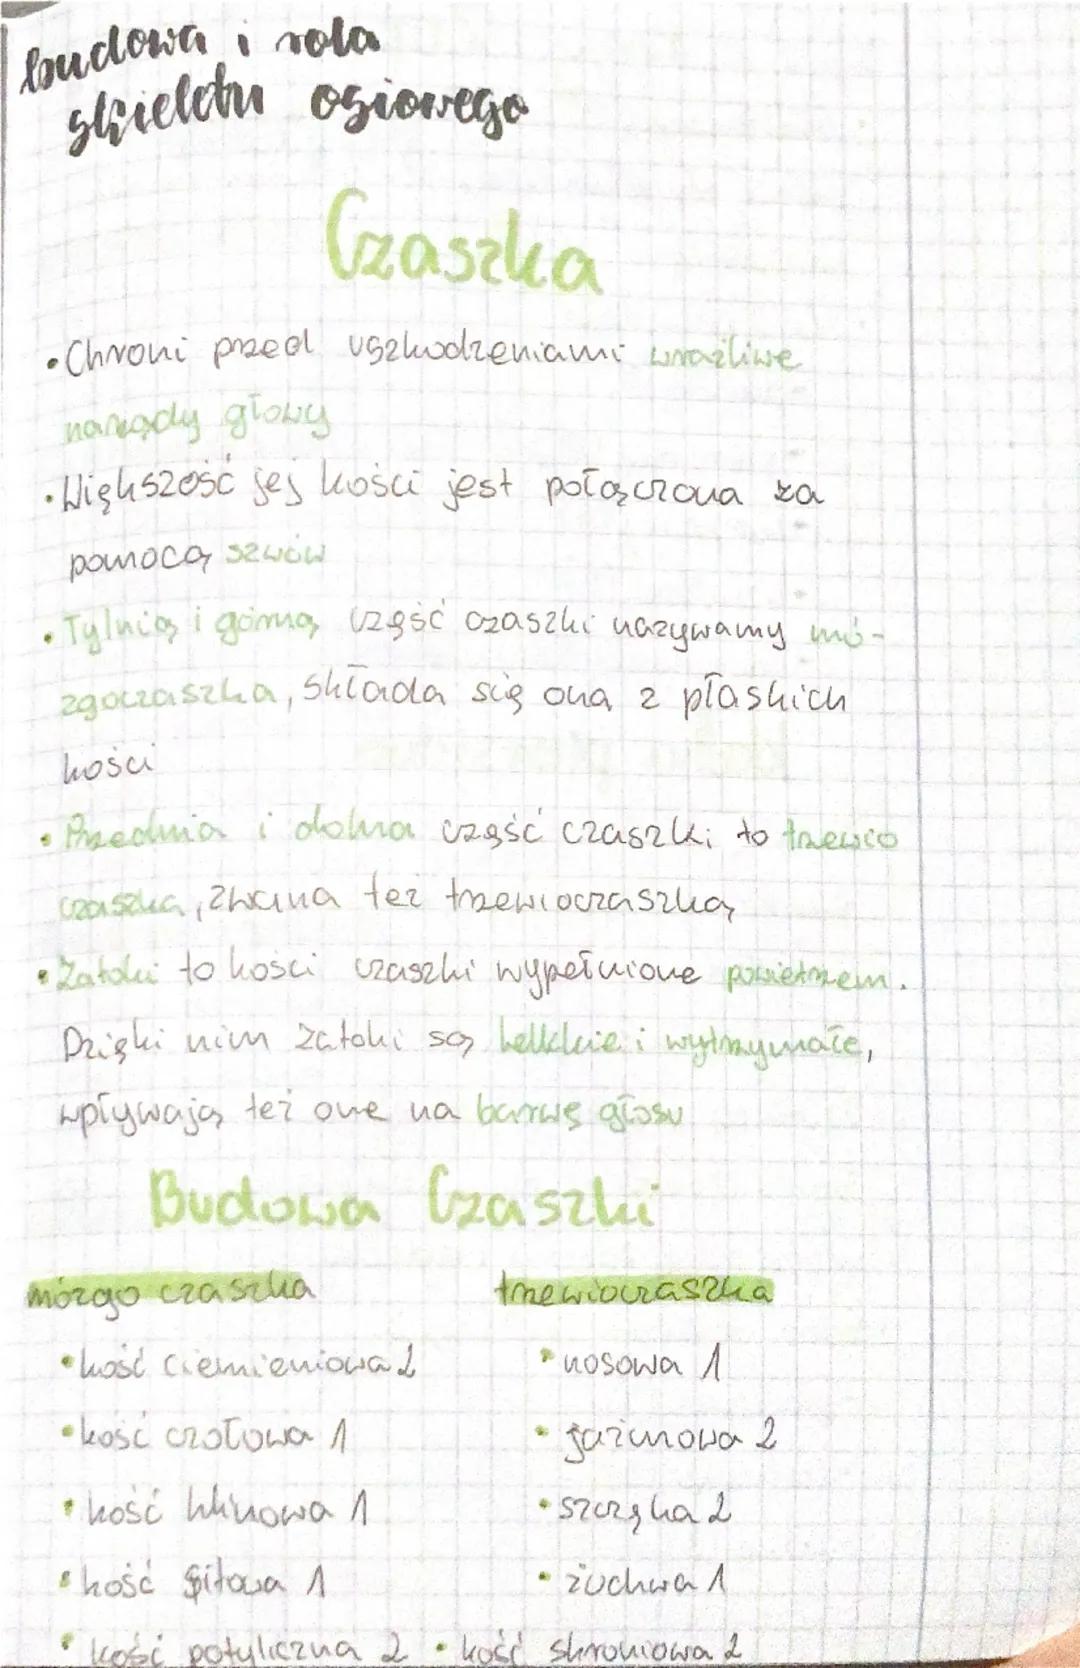 budowa i rola
skieletu osiowego
Czaszka
• Chroni przed uszkodzeniami wrażliwe
narządy głowy
• Większość jej kości jest połączona za
pomocą szwów
• Tylnią i górną część czaszki nazywamy mó-
zgoczaszka, składa się ona z płaskich
kości
• Przednia i dolna część czaszki to trzewio
czaszka, zwana też trzewioczaszką
• Zatoki to kości czaszki wypełnione powietrzem.
Dzięki nim zatoki są lekkie i wytrzymałe,
wpływają też one na barwę głosu
Budowa Czaszki
mózgo czaszka trzewioczaszka
• kość ciemieniowa 2 • nosowa 1
• kość czołowa 1 • jarzmowa 2
• kość klinowa 1 • szczęka 2
• kość sitowa 1 • żuchwa 1
• kość potyliczna 2 • kość skroniowa 2